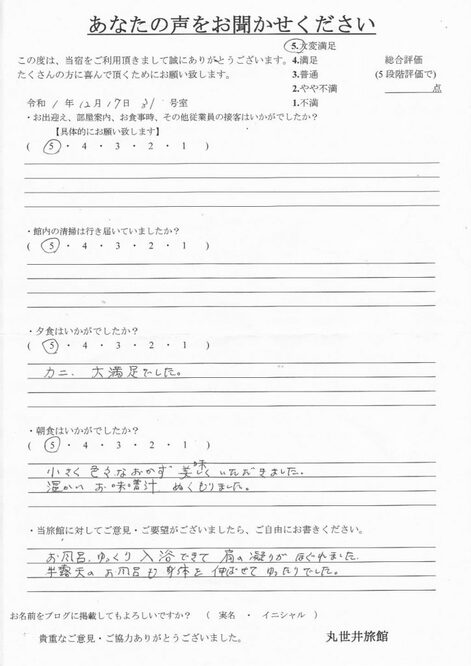 あなたの声をお聞かせください
5.大変満足
この度は、当宿をご利用頂きまして誠にありがとうございます。 4.満足 総合評価
たくさんの方に喜んで頂くためにお願い致します。 3.普通 (5段階評価で)
2.やや不満 点
令和 1 年 12 月 17 日 31 号室 1.不満
・お出迎え、部屋案内、お食事時、その他従業員の接客はいかがでしたか?
【具体的にお願い致します】
( 5 ・ 4 ・ 3 ・ 2 ・ 1 )
・館内の清掃は行き届いていましたか?
( 5 ・ 4 ・ 3 ・ 2 ・ 1 )
・夕食はいかがでしたか?
( 5 ・ 4 ・ 3 ・ 2 ・ 1 )
カニ、大満足でした。
・朝食はいかがでしたか?
( 5 ・ 4 ・ 3 ・ 2 ・ 1 )
小さく色々なおかず美味しくいただきました。
温かいお味噌汁 ぬくもりました。
・当旅館に対してご意見・ご要望がございましたら、ご自由にお書きください。
お風呂、ゆっくり入浴できて 肩の凝りがほぐれました。
半露天のお風呂も身体を伸ばせてゆったりでした。
お名前をブログに掲載してもよろしいですか? ( 実名 ・ イニシャル )
貴重なご意見・ご協力ありがとうございました。 丸世井旅館